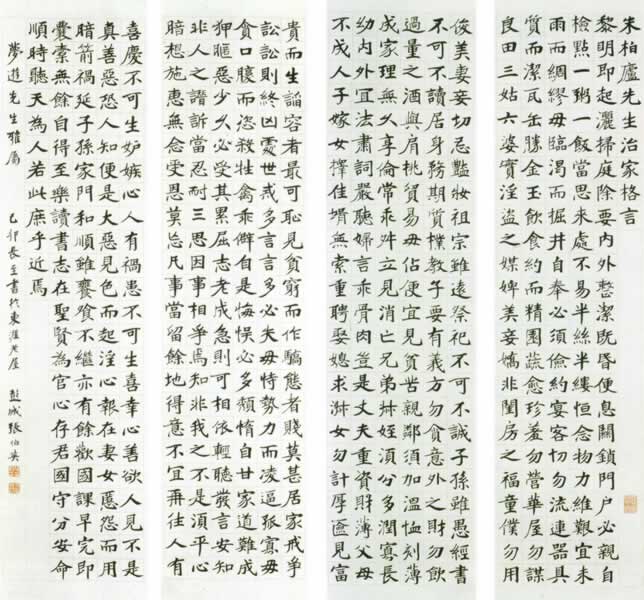 朱柏廬先生治家格言
黎明即起灑掃庭除要內外整潔既昏便息關鎖門戶必親自
檢點一粥一飯當思來處不易半絲半縷恒念物力維艱宜未
雨而綢繆毋臨渴而掘井自奉必須儉約宴客切勿流連器具
質而潔瓦缶勝金玉飲食約而精園蔬愈珍羞勿營華屋勿謀
良田三姑六婆實淫盜之媒婢美妾嬌非閨房之福童僕勿用
俊美妻妾切忌艷妝祖宗雖遠祭祀不可不誠子孫雖愚經書
不可不讀居身務期質樸教子要有義方勿貪意外之財勿飲
過量之酒與肩挑貿易毋佔便宜見貧苦親鄰須加溫恤刻薄
成家理無久享倫常乖舛立見消亡兄弟叔姪須分多潤寡長
幼內外宜法肅詞嚴聽婦言乖骨肉豈是丈夫重資財薄父母
不成人子嫁女擇佳壻無索重聘娶媳求淑女勿計厚匳見富
貴而生諂容者最可恥見貧窮而作驕態者賤莫甚居家戒爭
訟訟則終凶處世戒多言言多必失毋恃勢力而凌逼孤寡毋
貪口腹而恣殺牲禽乖僻自是悔誤必多頹惰自甘家道難成
狎昵惡少久必受其累屈志老成急則可相依輕聽發言安知
非人之譖訴當忍耐三思因事相爭焉知非我之不是須平心
暗想施惠無念受恩莫忘凡事當留餘地得意不宜再往人有
喜慶不可生妒嫉心人有禍患不可生喜幸心善欲人見不是
真善惡恐人知便是大惡見色而起淫心報在妻女匿怨而用
暗箭禍延子孫家門和順雖饔飧不繼亦有餘歡國課早完即
囊橐無餘自得至樂讀書志在聖賢為官心存君國守分安命
順時聽天為人若此庶乎近焉
夢遊先生雅屬 己卯長至書於東涯老屋 彭城張伯英